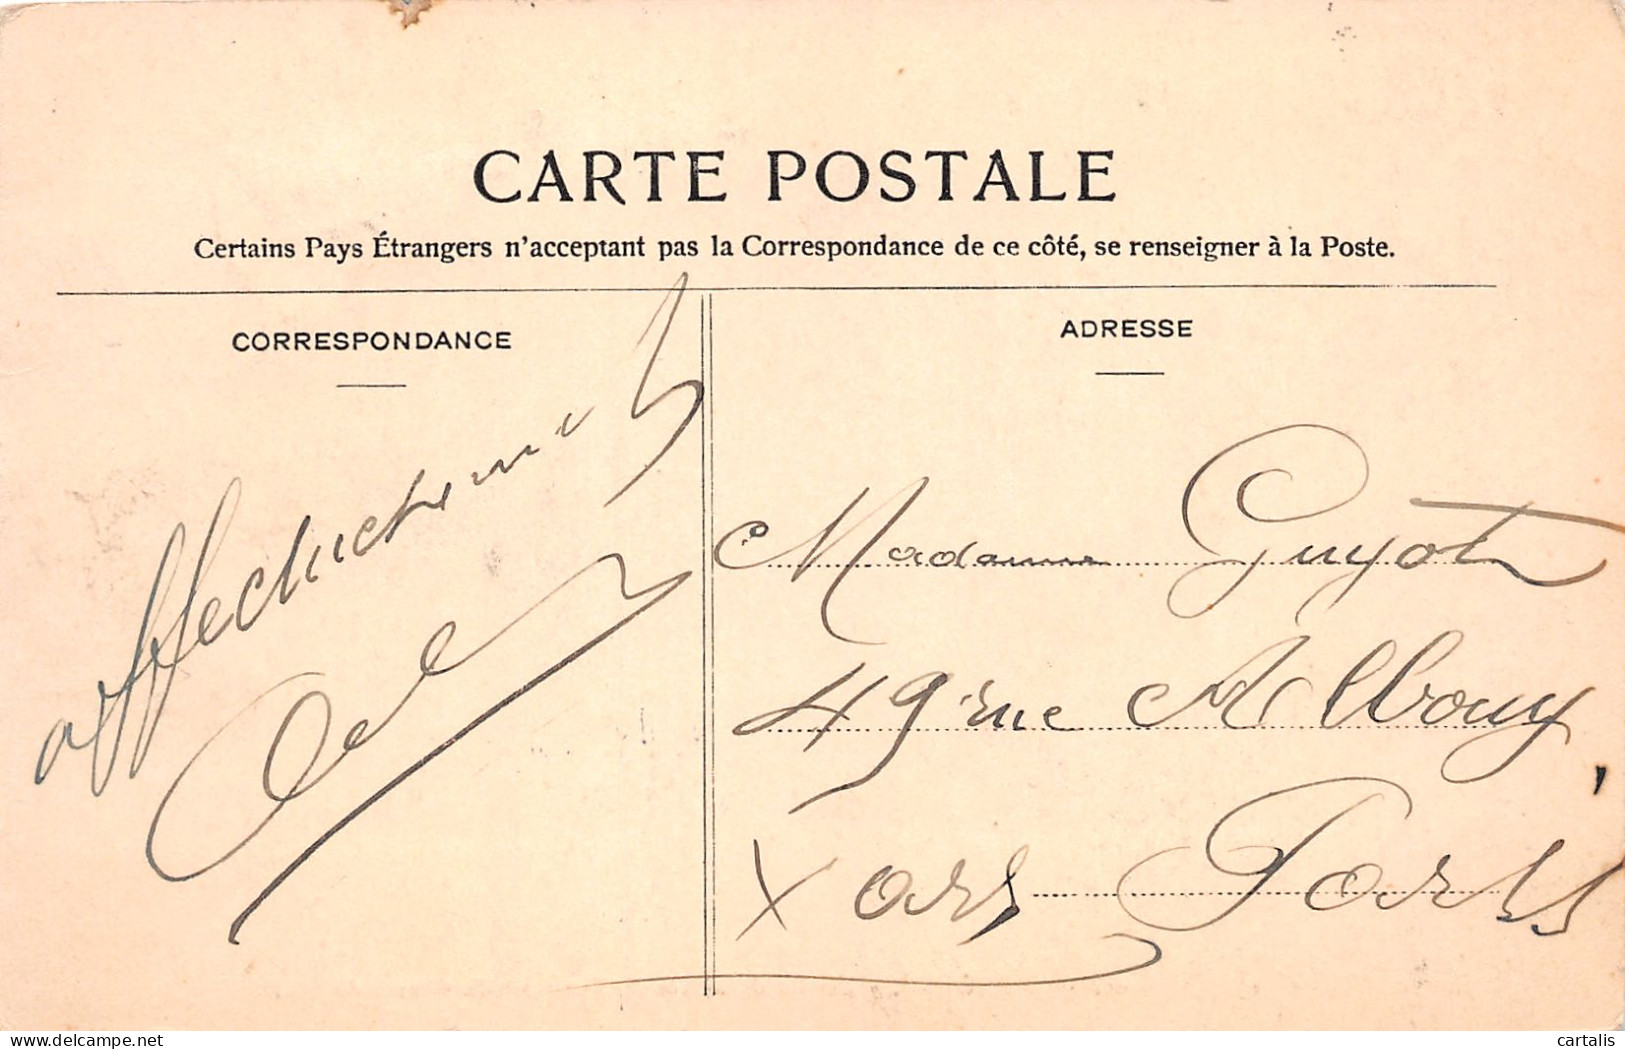 CARTE POSTALE
Certains Pays Étrangers n'acceptant pas la Correspondance de ce côté, se renseigner à la Poste.
CORRESPONDANCE
affectueusement
ADRESSE
Madame Guyot
49 rue Albouy
X arr Paris
delcampe.net
cartalis